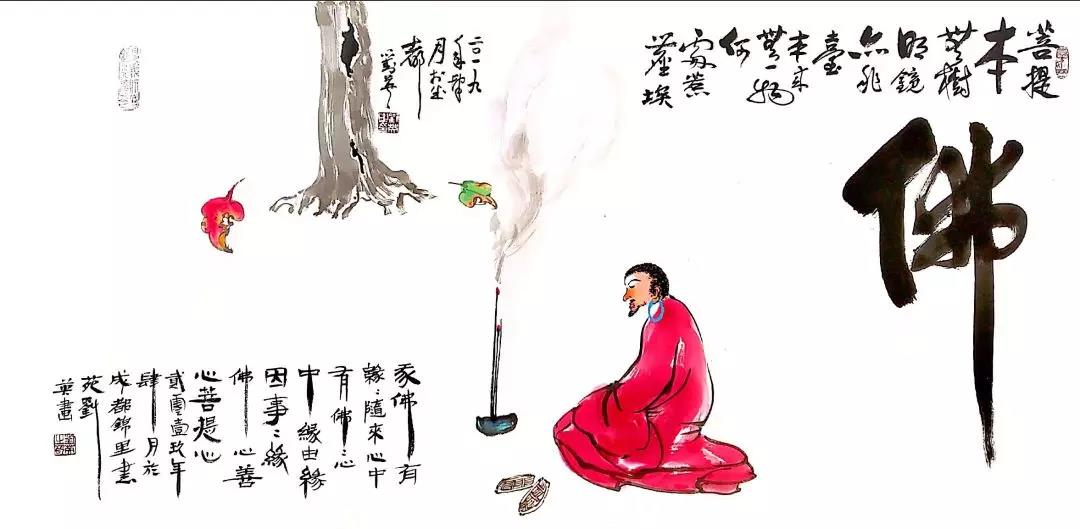 菩提
本
無樹
明鏡
亦非
臺
本来
無一物
何
處惹
塵埃
佛
二〇一九
年肆
月於成
都
佛有
緣：隨來心中
有佛：心
中緣由緣
因事：緣
佛心善
心菩提心
貳零壹玖年
肆月於
成都錦里書
苑劉
英畫